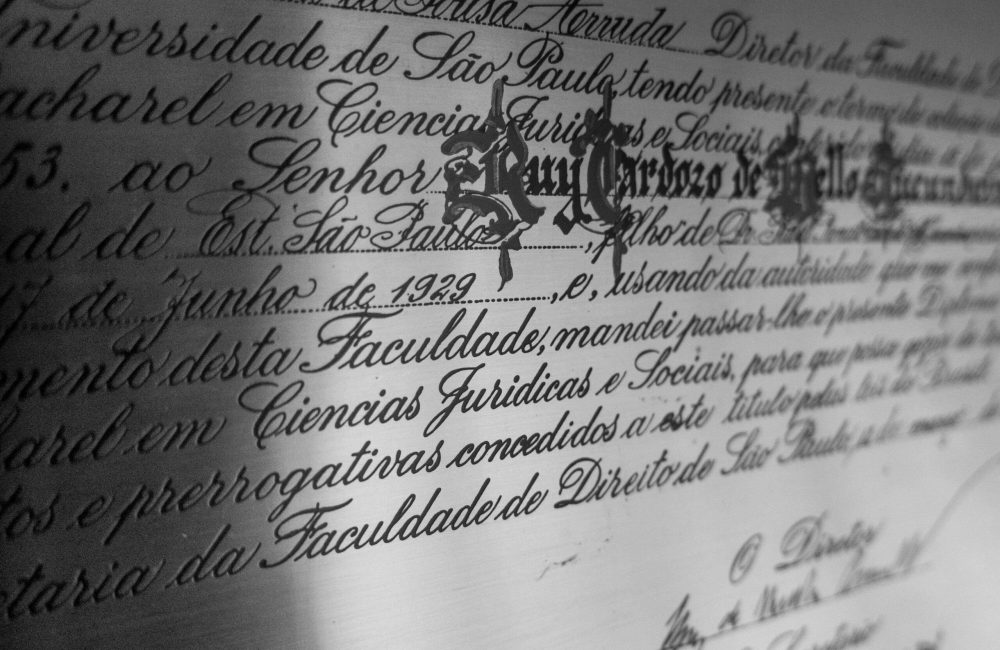 Sousa Arruda Diretor da Faculdade de
niversidade de São Paulo, tendo presente o termo de
acharel em Ciencias Juridicas e Sociais, conferido
53. ao Senhor Ruy Cardozo de Mello
al de Est. São Paulo, filho de Dr.
17 de Junho de 1929, e, usando da autoridade que me
mento desta Faculdade, mandei passar-lhe o presente Diploma
arel em Ciencias Juridicas e Sociais, para que possa gozar
tos e prerrogativas concedidos a este titulo pelas leis do Brasil.
etaria da Faculdade de Direito de São Paulo,
O Diretor